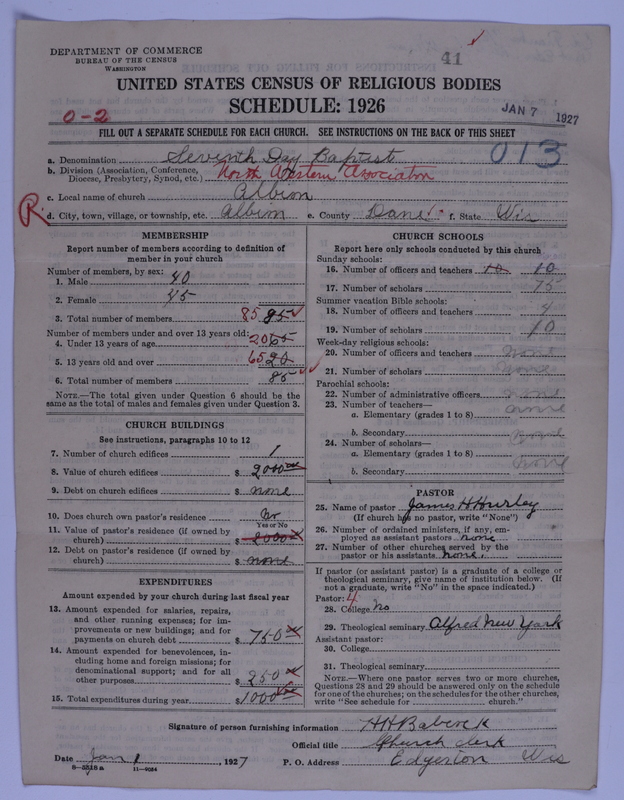 41
DEPARTMENT OF COMMERCE
BUREAU OF THE CENSUS
WASHINGTON
UNITED STATES CENSUS OF RELIGIOUS BODIES
SCHEDULE: 1926
0-2
JAN 7 1927
FILL OUT A SEPARATE SCHEDULE FOR EACH CHURCH. SEE INSTRUCTIONS ON THE BACK OF THIS SHEET
013
a. Denomination Seventh Day Baptist
b. Division (Association, Conference, Diocese, Presbytery, Synod, etc.) North Western Association
c. Local name of church Albion
R
d. City, town, village, or township, etc. Albion e. County Dane f. State Wis
MEMBERSHIP
Report number of members according to definition of member in your church
Number of members, by sex:
1. Male 40
2. Female 45
3. Total number of members 85 85
Number of members under and over 13 years old:
4. Under 13 years of age 20 65
5. 13 years old and over 65 20
6. Total number of members 85
NOTE.—The total given under Question 6 should be the same as the total of males and females given under Question 3.
CHURCH BUILDINGS
See instructions, paragraphs 10 to 12
7. Number of church edifices 1
8. Value of church edifices $ 2000
9. Debt on church edifices $ none
10. Does church own pastor's residence No
Yes or No
11. Value of pastor's residence (if owned by church) $ 2000
12. Debt on pastor's residence (if owned by church) $ none
EXPENDITURES
Amount expended by your church during last fiscal year
13. Amount expended for salaries, repairs, and other running expenses; for improvements or new buildings; and for payments on church debt $ 750
14. Amount expended for benevolences, including home and foreign missions; for denominational support; and for all other purposes $ 250
15. Total expenditures during year $ 1000
CHURCH SCHOOLS
Report here only schools conducted by this church
Sunday schools:
16. Number of officers and teachers 10 10
17. Number of scholars 75
Summer vacation Bible schools:
18. Number of officers and teachers 4
19. Number of scholars 10
Week-day religious schools:
20. Number of officers and teachers none
21. Number of scholars none
Parochial schools:
22. Number of administrative officers none
23. Number of teachers—
a. Elementary (grades 1 to 8) none
b. Secondary none
24. Number of scholars—
a. Elementary (grades 1 to 8) none
b. Secondary
PASTOR
25. Name of pastor James H Hurley
(If church has no pastor, write "None")
26. Number of ordained ministers, if any, employed as assistant pastors none
27. Number of other churches served by the pastor or his assistants none
If pastor (or assistant pastor) is a graduate of a college or theological seminary, give name of institution below. (If not a graduate, write "No" in the space indicated.)
Pastor: 4
28. College No
29. Theological seminary Alfred New York
Assistant pastor:
30. College
31. Theological seminary
NOTE.—Where one pastor serves two or more churches, Questions 28 and 29 should be answered only on the schedule for one of the churches; on the schedules for the other churches, write "See schedule for church."
Signature of person furnishing information H Babcock
Official title Church clerk
Date Jan 1, 1927 P. O. Address Edgerton Wis
11-9084